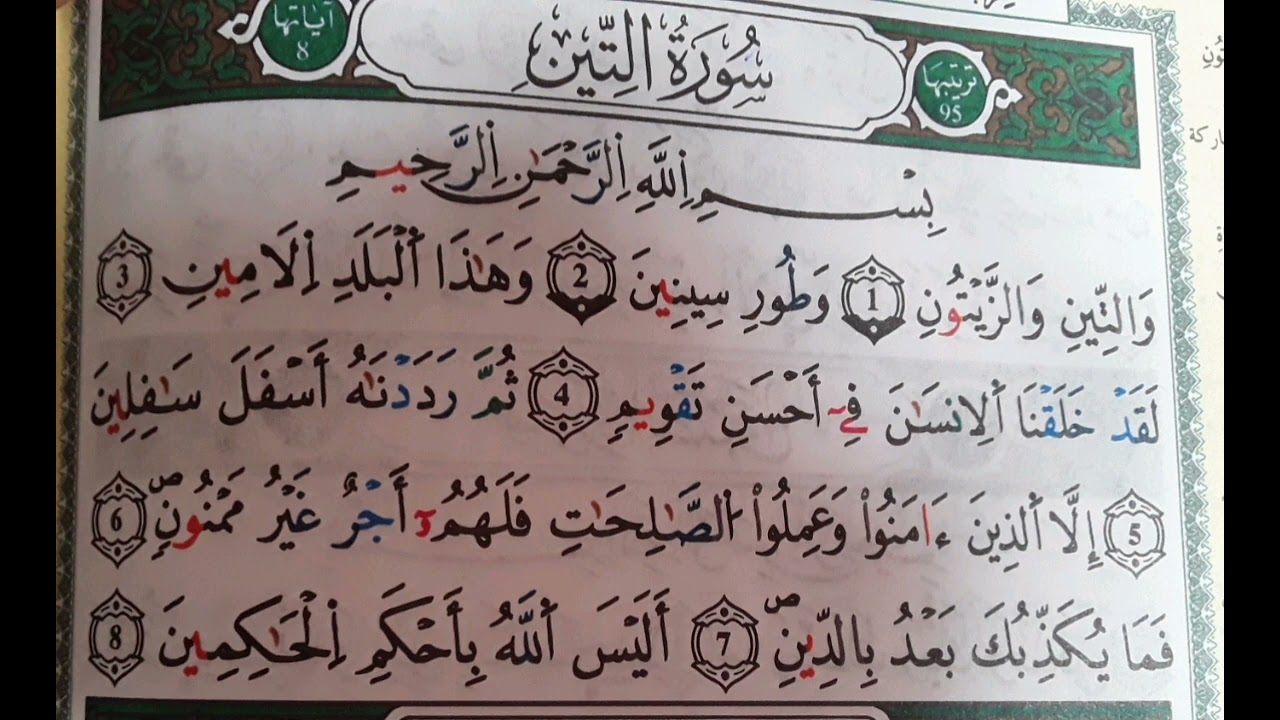 ترتيبها 95 سُورَةُ التِّينِ آيَاتها 8
بِسْمِ اِللَّهِ اِلرَّحْمَٰنِ اِلرَّحِيمِ
وَالتِّينِ وَالزَّيْتُونِ 1 وَطُورِ سِينِينَ 2 وَهَٰذَا اَلْبَلَدِ اِلَامِينِ 3
لَقَدْ خَلَقْنَا اَلِانسَٰنَ فِےٓ أَحْسَنِ تَقْوِيمٖ 4 ثُمَّ رَدَدْنَٰهُ أَسْفَلَ سَٰفِلِينَ
5 إِلَّا اَلذِينَ ءَامَنُواْ وَعَمِلُواْ اُلصَّٰلِحَٰتِ فَلَهُمُۥٓ أَجْرٌ غَيْرُ مَمْنُونٖۖ 6
فَمَا يُكَذِّبُكَ بَعْدُ بِالدِّينِۖ 7 أَلَيْسَ اَللَّهُ بِأَحْكَمِ اِلْحَٰكِمِينَ 8